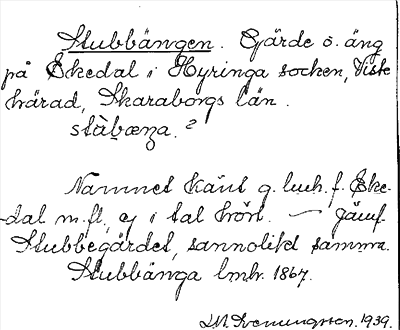 Stubbängen. Gärde o. äng
på Ekedal i Hyringa socken, Viste
härad, Skaraborgs län.
stàbæŋa.²
Namnet känt g. luh. f. Eke-
dal m. fl, ej i tal hört. — Jämf.
Stubbegärdet, sannolikt samma.
Stubbänga lmh. 1867.
Svenungsson. 1939.